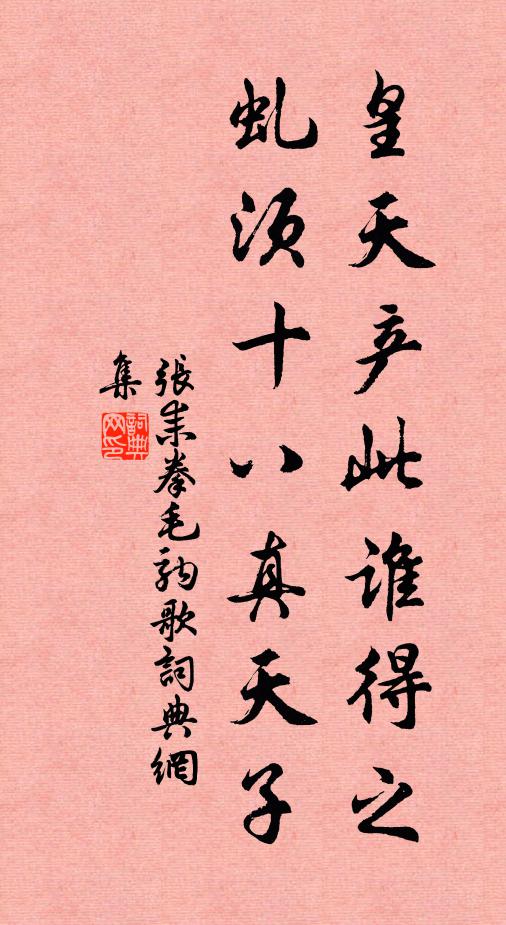 皇天产此谁得之
虬须十八真天子
張耒拳毛騧歌詞典網
集
詞典
网印